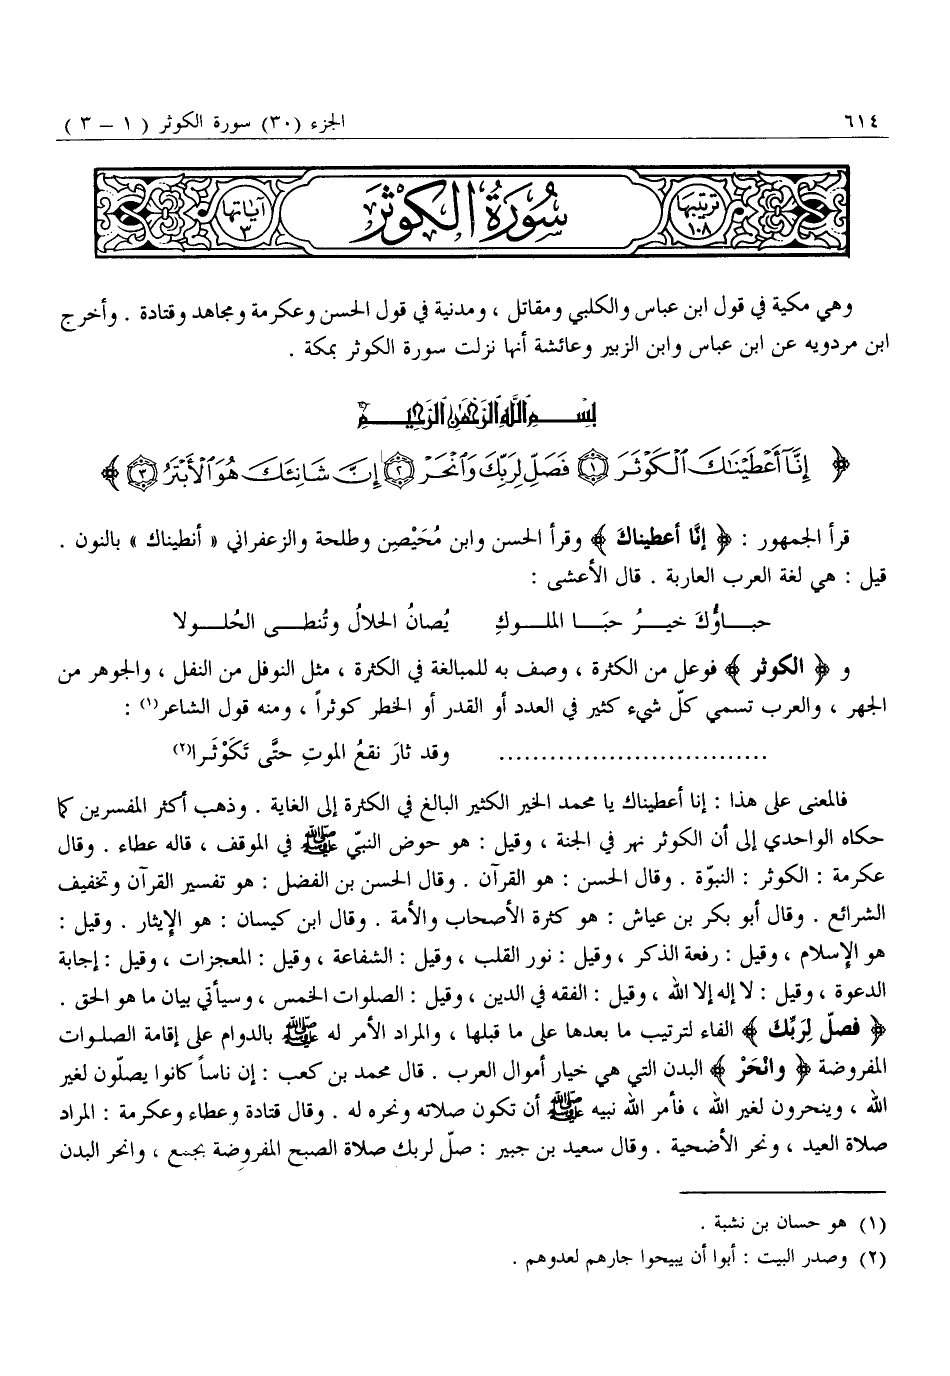 ٦١٤ الجزء (٣٠) سورة الكوثر ( ١ - ٣ )
ترتيبها ١٠٨ سورة الكوثر آياتها ٣
وهي مكية في قول ابن عباس والكلبي ومقاتل ، ومدنية في قول الحسن وعكرمة ومجاهد وقتادة . وأخرج
ابن مردويه عن ابن عباس وابن الزبير وعائشة أنها نزلت سورة الكوثر بمكة .
بسم الله الرحمن الرحيم
﴿ إِنَّآ أَعْطَيْنَٰكَ ٱلْكَوْثَرَ ١ فَصَلِّ لِرَبِّكَ وَٱنْحَرْ ٢ إِنَّ شَانِئَكَ هُوَ ٱلْأَبْتَرُ ٣ ﴾
قرأ الجمهور : ﴿ إنَّا أعطيناكَ ﴾ وقرأ الحسن وابن مُحَيْصِن وطلحة والزعفراني « أنطيناك » بالنون .
قيل : هي لغة العرب العاربة . قال الأعشى :
حباؤُكَ خيرُ حبَا الملوكِ يُصانُ الحلالُ وتُنطى الحُلولا
و ﴿ الكوثر ﴾ فوعل من الكثرة ، وصف به للمبالغة في الكثرة ، مثل النوفل من النفل ، والجوهر من
الجهر ، والعرب تسمي كلّ شيء كثير في العدد أو القدر أو الخطر كوثراً ، ومنه قول الشاعر(١) :
................................ وقد ثارَ نقعُ الموتِ حتَّى تَكَوْثَرا(٢)
فالمعنى على هذا : إنا أعطيناك يا محمد الخير الكثير البالغ في الكثرة إلى الغاية . وذهب أكثر المفسرين كما
حكاه الواحدي إلى أن الكوثر نهر في الجنة ، وقيل : هو حوض النبيّ ﷺ في الموقف ، قاله عطاء . وقال
عكرمة : الكوثر : النبوّة . وقال الحسن : هو القرآن . وقال الحسن بن الفضل : هو تفسير القرآن وتخفيف
الشرائع . وقال أبو بكر بن عياش : هو كثرة الأصحاب والأمة . وقال ابن كيسان : هو الإيثار . وقيل :
هو الإسلام ، وقيل : رفعة الذكر ، وقيل : نور القلب ، وقيل : الشفاعة ، وقيل : المعجزات ، وقيل : إجابة
الدعوة ، وقيل : لا إله إلا الله ، وقيل : الفقه في الدين ، وقيل : الصلوات الخمس ، وسيأتي بيان ما هو الحق .
﴿ فصلّ لِرَبِّكَ ﴾ الفاء لترتيب ما بعدها على ما قبلها ، والمراد الأمر له ﷺ بالدوام على إقامة الصلوات
المفروضة ﴿ وانْحَرْ ﴾ البدن التي هي خيار أموال العرب . قال محمد بن كعب : إن ناساً كانوا يصلّون لغير
الله ، وينحرون لغير الله ، فأمر الله نبيه ﷺ أن تكون صلاته ونحره له . وقال قتادة وعطاء وعكرمة : المراد
صلاة العيد ، ونحر الأضحية . وقال سعيد بن جبير : صلّ لربك صلاة الصبح المفروضة بجمع ، وانحر البدن
(١) هو حسان بن نشبة .
(٢) وصدر البيت : أبوا أن يبيحوا جارهم لعدوهم .